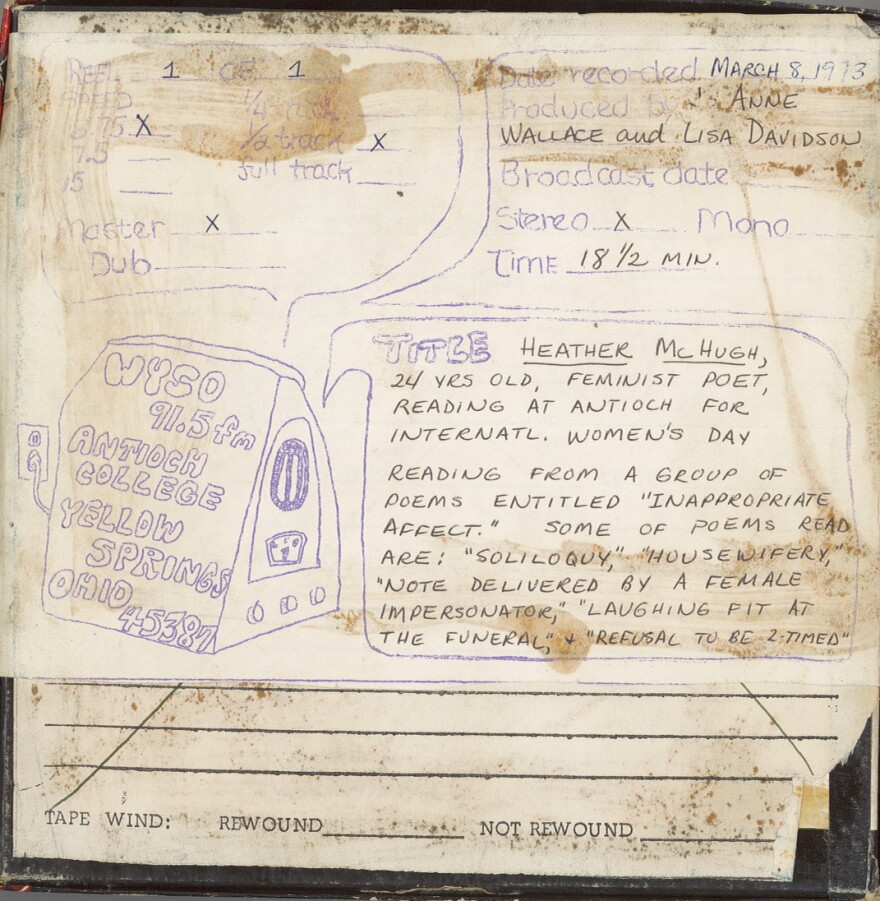 REEL 1 OF 1
SPEED 1/4 track
3.75 X 1/2 track X
7.5 full track
15
Master X
Dub
Date recorded MARCH 8, 1973
Produced by: ANNE
WALLACE and LISA DAVIDSON
Broadcast date
Stereo X Mono
TIME 18 1/2 MIN.
WYSO
91.5 fm
ANTIOCH
COLLEGE
YELLOW
SPRINGS
OHIO
45387
TITLE HEATHER McHUGH,
24 YRS OLD, FEMINIST POET,
READING AT ANTIOCH FOR
INTERNATL. WOMEN'S DAY
READING FROM A GROUP OF
POEMS ENTITLED "INAPPROPRIATE
AFFECT." SOME OF POEMS READ
ARE: "SOLILOQUY," "HOUSEWIFERY,"
"NOTE DELIVERED BY A FEMALE
IMPERSONATOR," "LAUGHING FIT AT
THE FUNERAL," & "REFUSAL TO BE 2-TIMED"
TAPE WIND: REWOUND NOT REWOUND